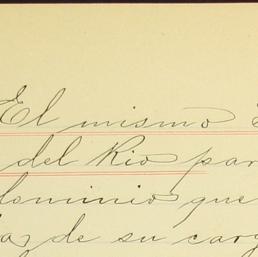 El mismo
del Rio par
dominio que
de su carg